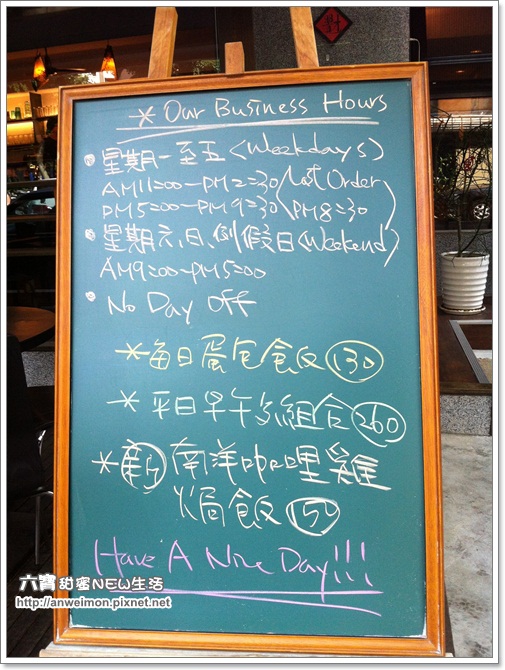 * Our Business Hours
• 星期一至五 (Weekdays)
AM11:00-PM2:30 / Last Order
PM5:00-PM9:30 \ PM8:30
• 星期六、日、例假日 (Weekend)
AM9:00-PM5:00
• No Day off
* 每日蛋包飯 130
* 平日早午組合 260
* 新 南洋咖哩雞
焗飯 150
Have A Nice Day!!!
六寶 甜蜜NEW生活
http://anweimon.pixnet.net